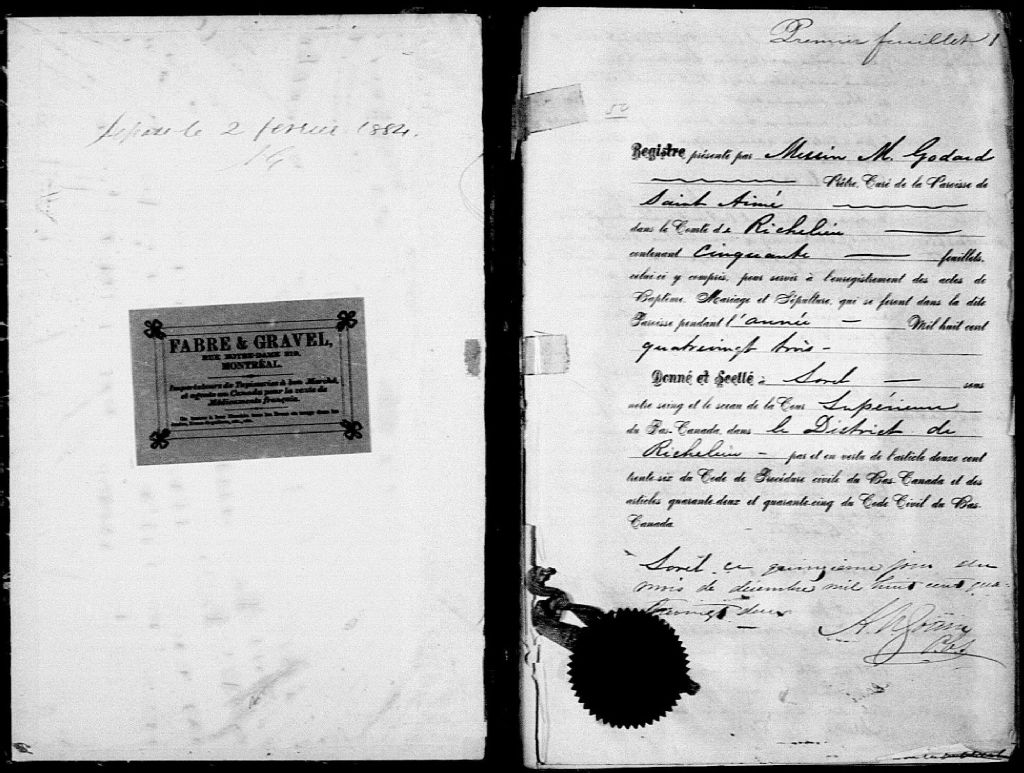 le 2 février 1884.
FABRE & GRAVEL,
RUE NOTRE-DAME 219,
MONTRÉAL.
Importateurs de Tapisseries à bon Marché,
et agents en Canada pour la vente de
Médicaments français.
Premier feuillet 1
50
Registre présenté par Messire M. Godard
Prêtre, Curé de la Paroisse de
Saint Aimé
dans le Comté de Richelieu
contenant Cinquante feuillets,
celui-ci y compris, pour servir à l'enregistrement des actes de
Baptême, Mariage et Sépulture, qui se feront dans la dite
Paroisse pendant l'année - Mil huit cent
quatrevingt trois -
Donné et Scellé à Sorel - sous
notre seing et le sceau de la Cour Supérieure
du Bas-Canada, dans le District de
Richelieu - par et en vertu de l'article douze cent
trente-six du Code de Procédure civile du Bas-Canada et des
articles quarante-deux et quarante-cinq du Code Civil du Bas-
Canada.
Sorel ce quinzième jour du
mois de décembre mil huit cent qua-
trevingt deux